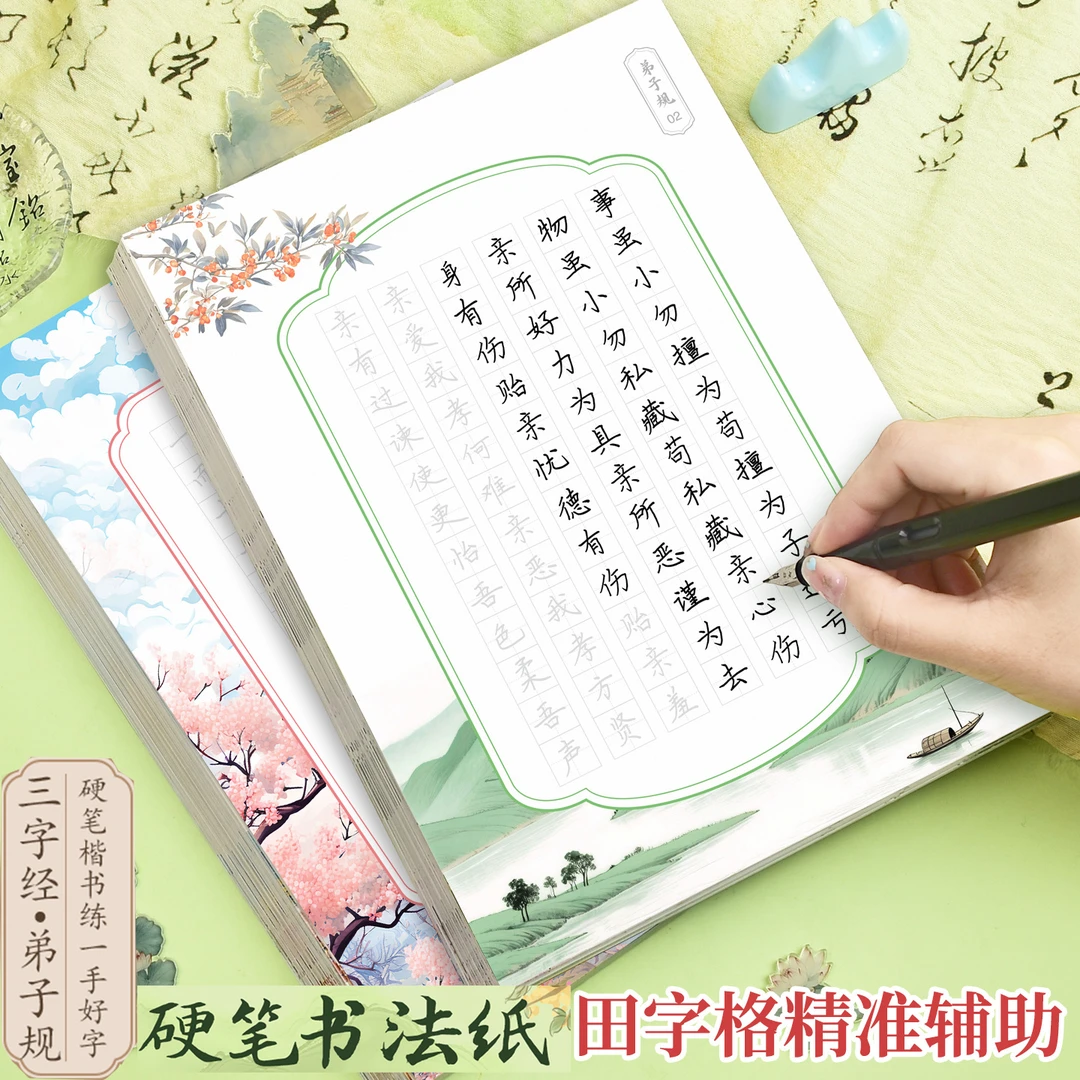 弟子规 02
事虽小勿擅为苟擅为子 亏
物虽小勿私藏苟私藏亲心伤
亲所好力为具亲所恶谨为去
身有伤贻亲忧德有伤贻亲羞
亲爱我孝何难亲恶我孝方贤
亲有过谏使更怡吾色柔吾声
硬笔楷书练一手好字
三字经•弟子规
硬笔书法纸
田字格精准辅助